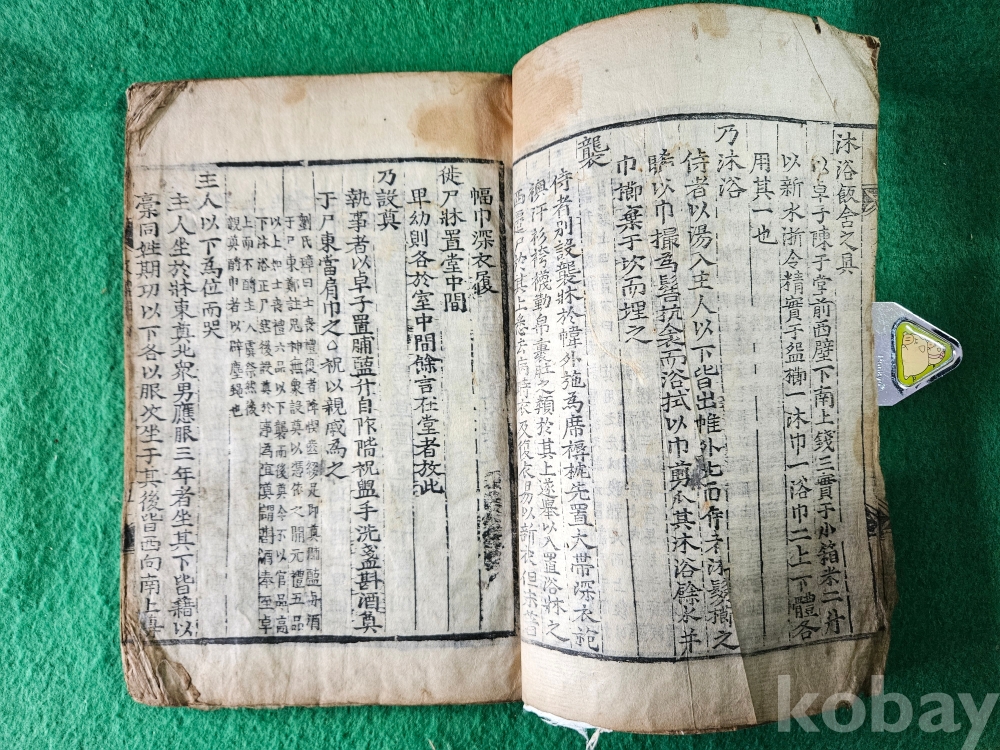 沐浴飯含之具
以卓子陳于堂前西壁下南上錢三實于小箱米二升
以新水淅令精實于盌櫛一沐巾一浴巾二上下體各
用其一也
乃沐浴
侍者以湯入主人以下皆出帷外北面侍者沐髮櫛之
晞以巾撮為髻抗衾而浴拭以巾剪爪其沐浴餘水并
巾櫛棄于坎而埋之
襲
侍者別設襲牀於幃外施為席褥枕先置大帶深衣袍
襖汗衫袴襪勒帛裹肚之類於其上遂舉以入置浴牀之
西遷尸於其上悉去病時衣及復衣易以新衣但未著
幅巾深衣履
徙尸牀置堂中間
卑幼則各於室中間餘言在堂者放此
乃設奠
執事者以卓子置脯醢升自阼階祝盥手洗盞斟酒奠
于尸東當肩巾之○祝以親戚為之
劉氏璋曰士喪禮復者降楔齒綴足即奠脯醢與酒
于尸東鄭註鬼神無象設奠以憑依之開元禮五品
以上如士喪禮六品以下襲而後奠今不以官品高
下沐浴正尸然後設奠於事為宜奠謂斟酒奉至卓
上而不酹主人虞祭然後
親奠酹巾者以辟塵蠅也
主人以下為位而哭
主人坐於牀東奠北衆男應服三年者坐其下皆藉以
藁同姓期功以下各以服次坐于其後皆西向南上尊
kobay